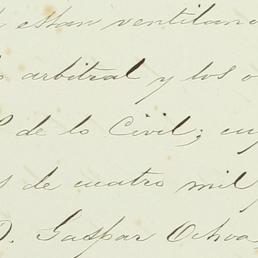 estan ventilan
arbitral y los
de lo Civil; cuy
de cuatro mil
D. Gaspar Ochoa